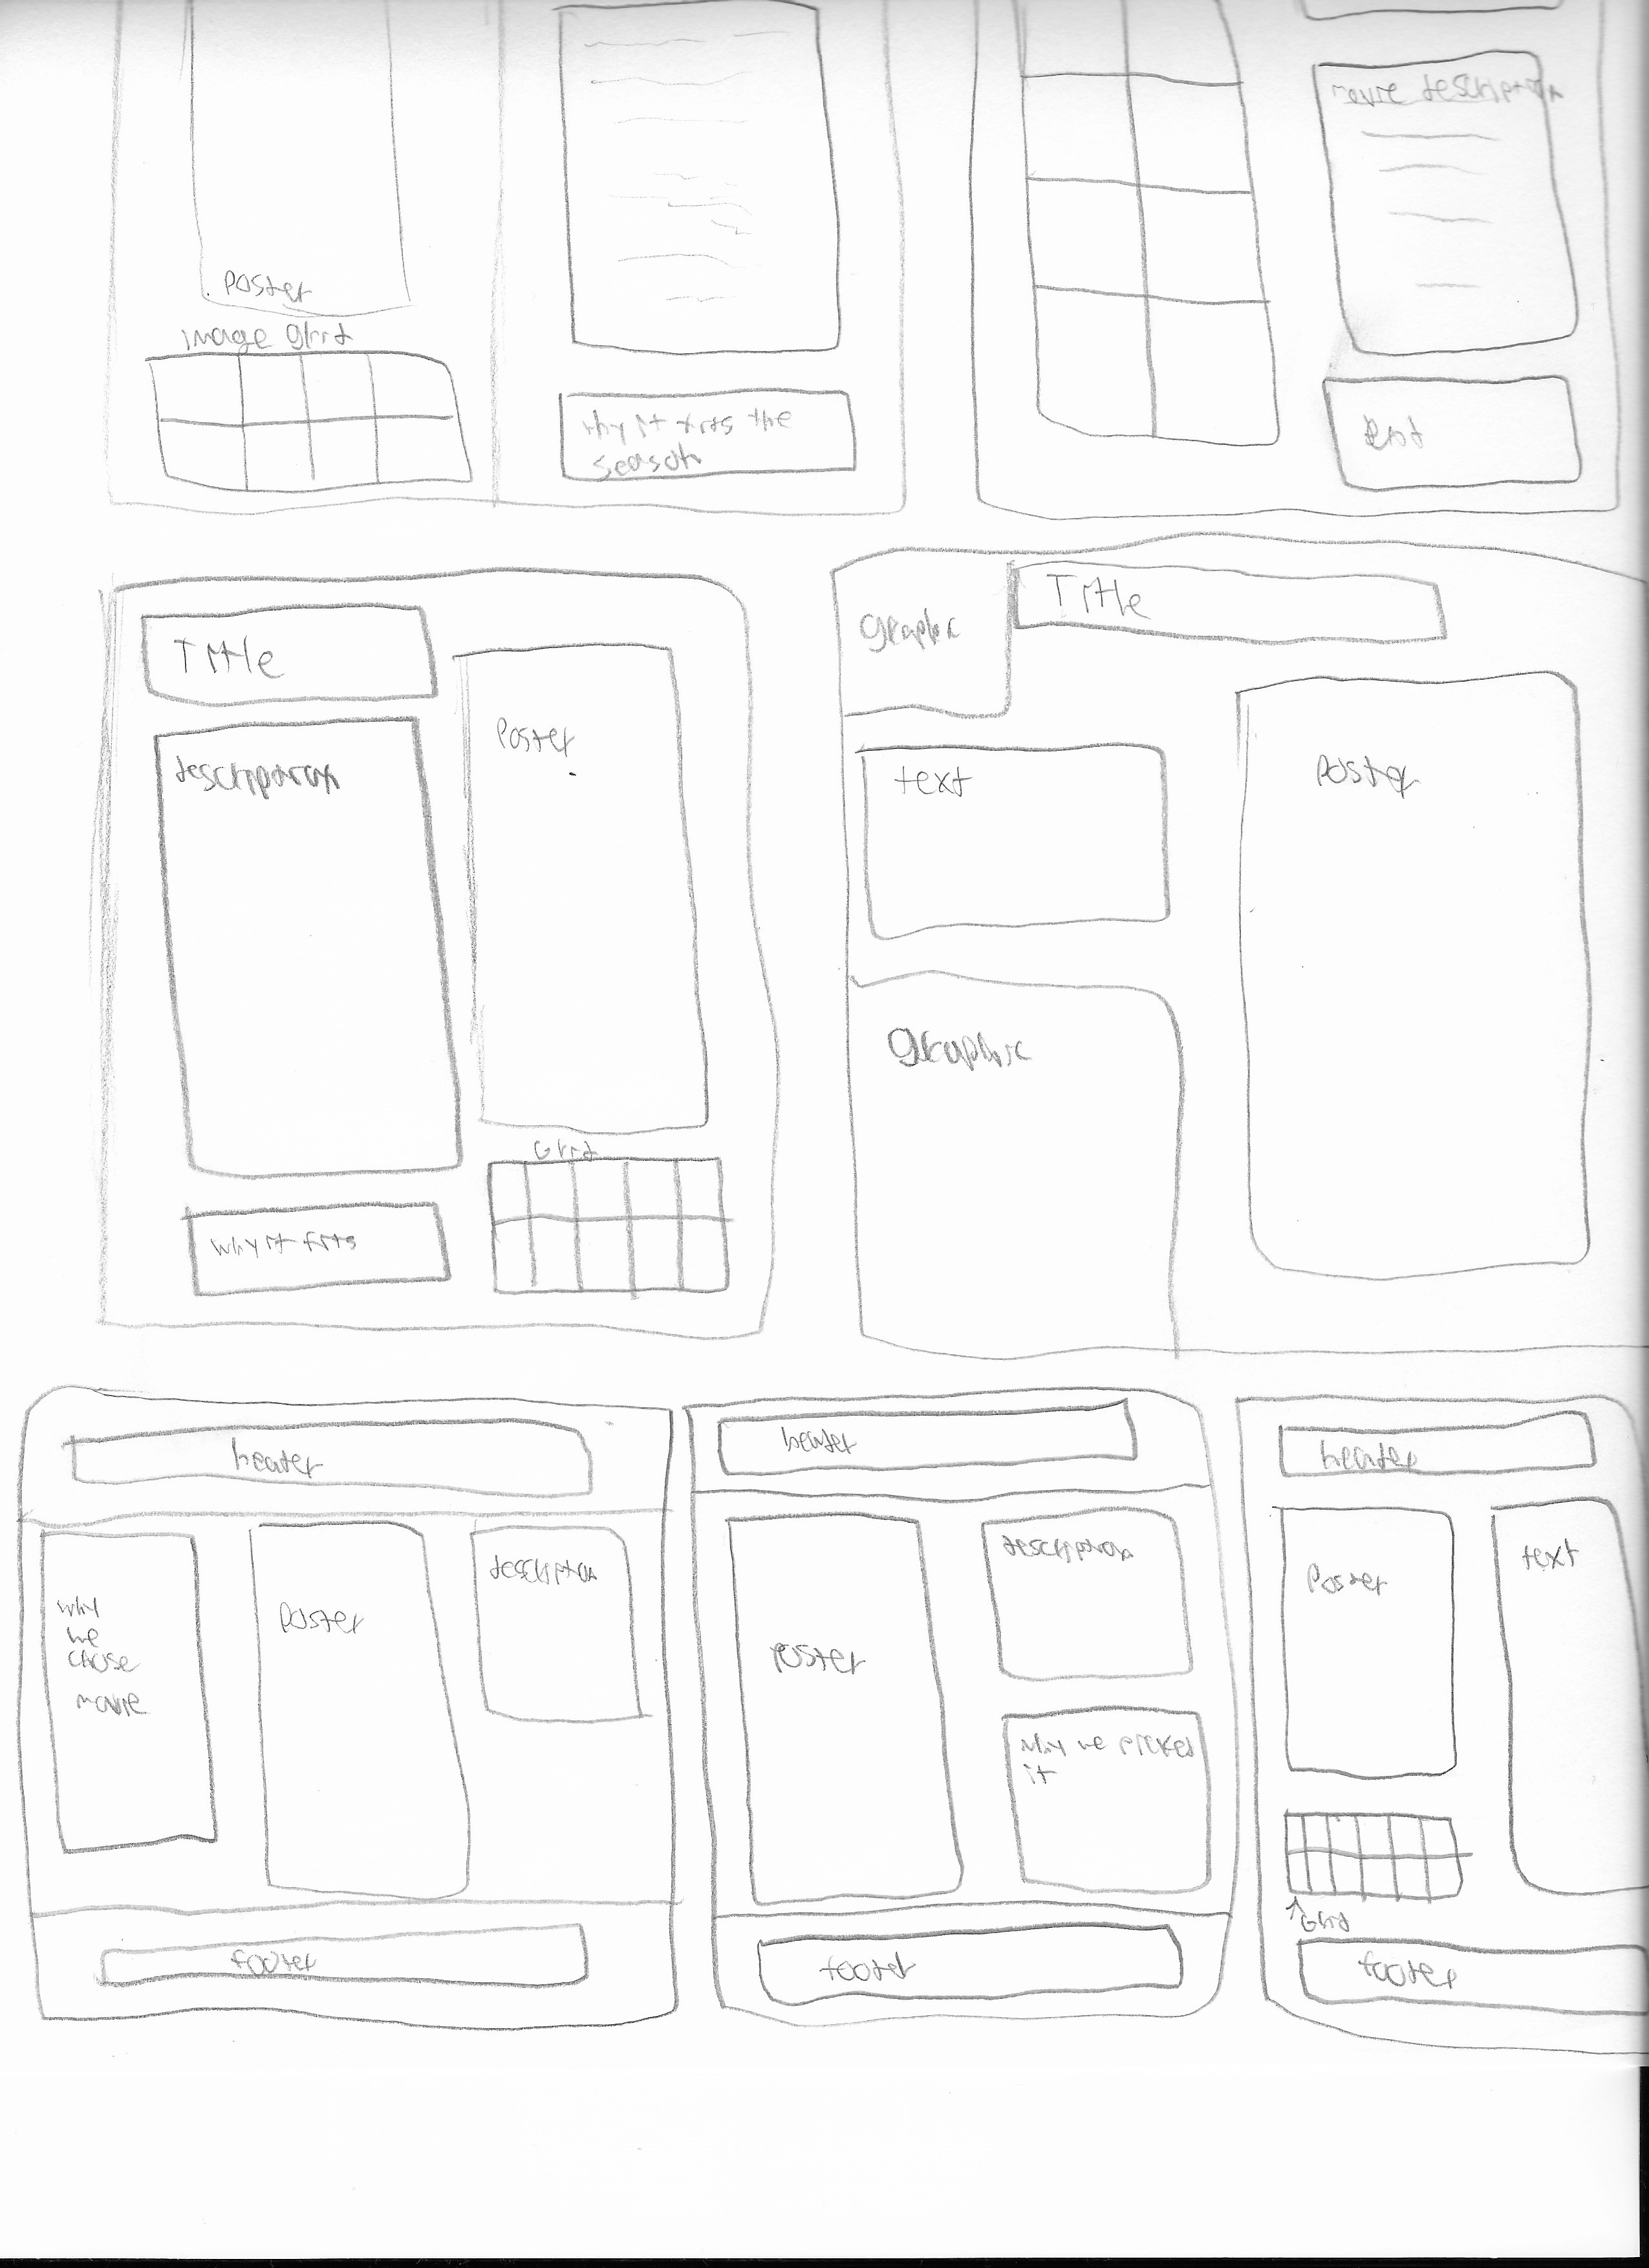 Poster
image grid
why it fits the
season
movie description
text
Title
description
Poster
Grid
why it fits
graphic
Title
text
Poster
graphic
header
why
we
chose
movie
Poster
description
footer
header
poster
description
why we picked
it
footer
header
Poster
text
Grid
footer